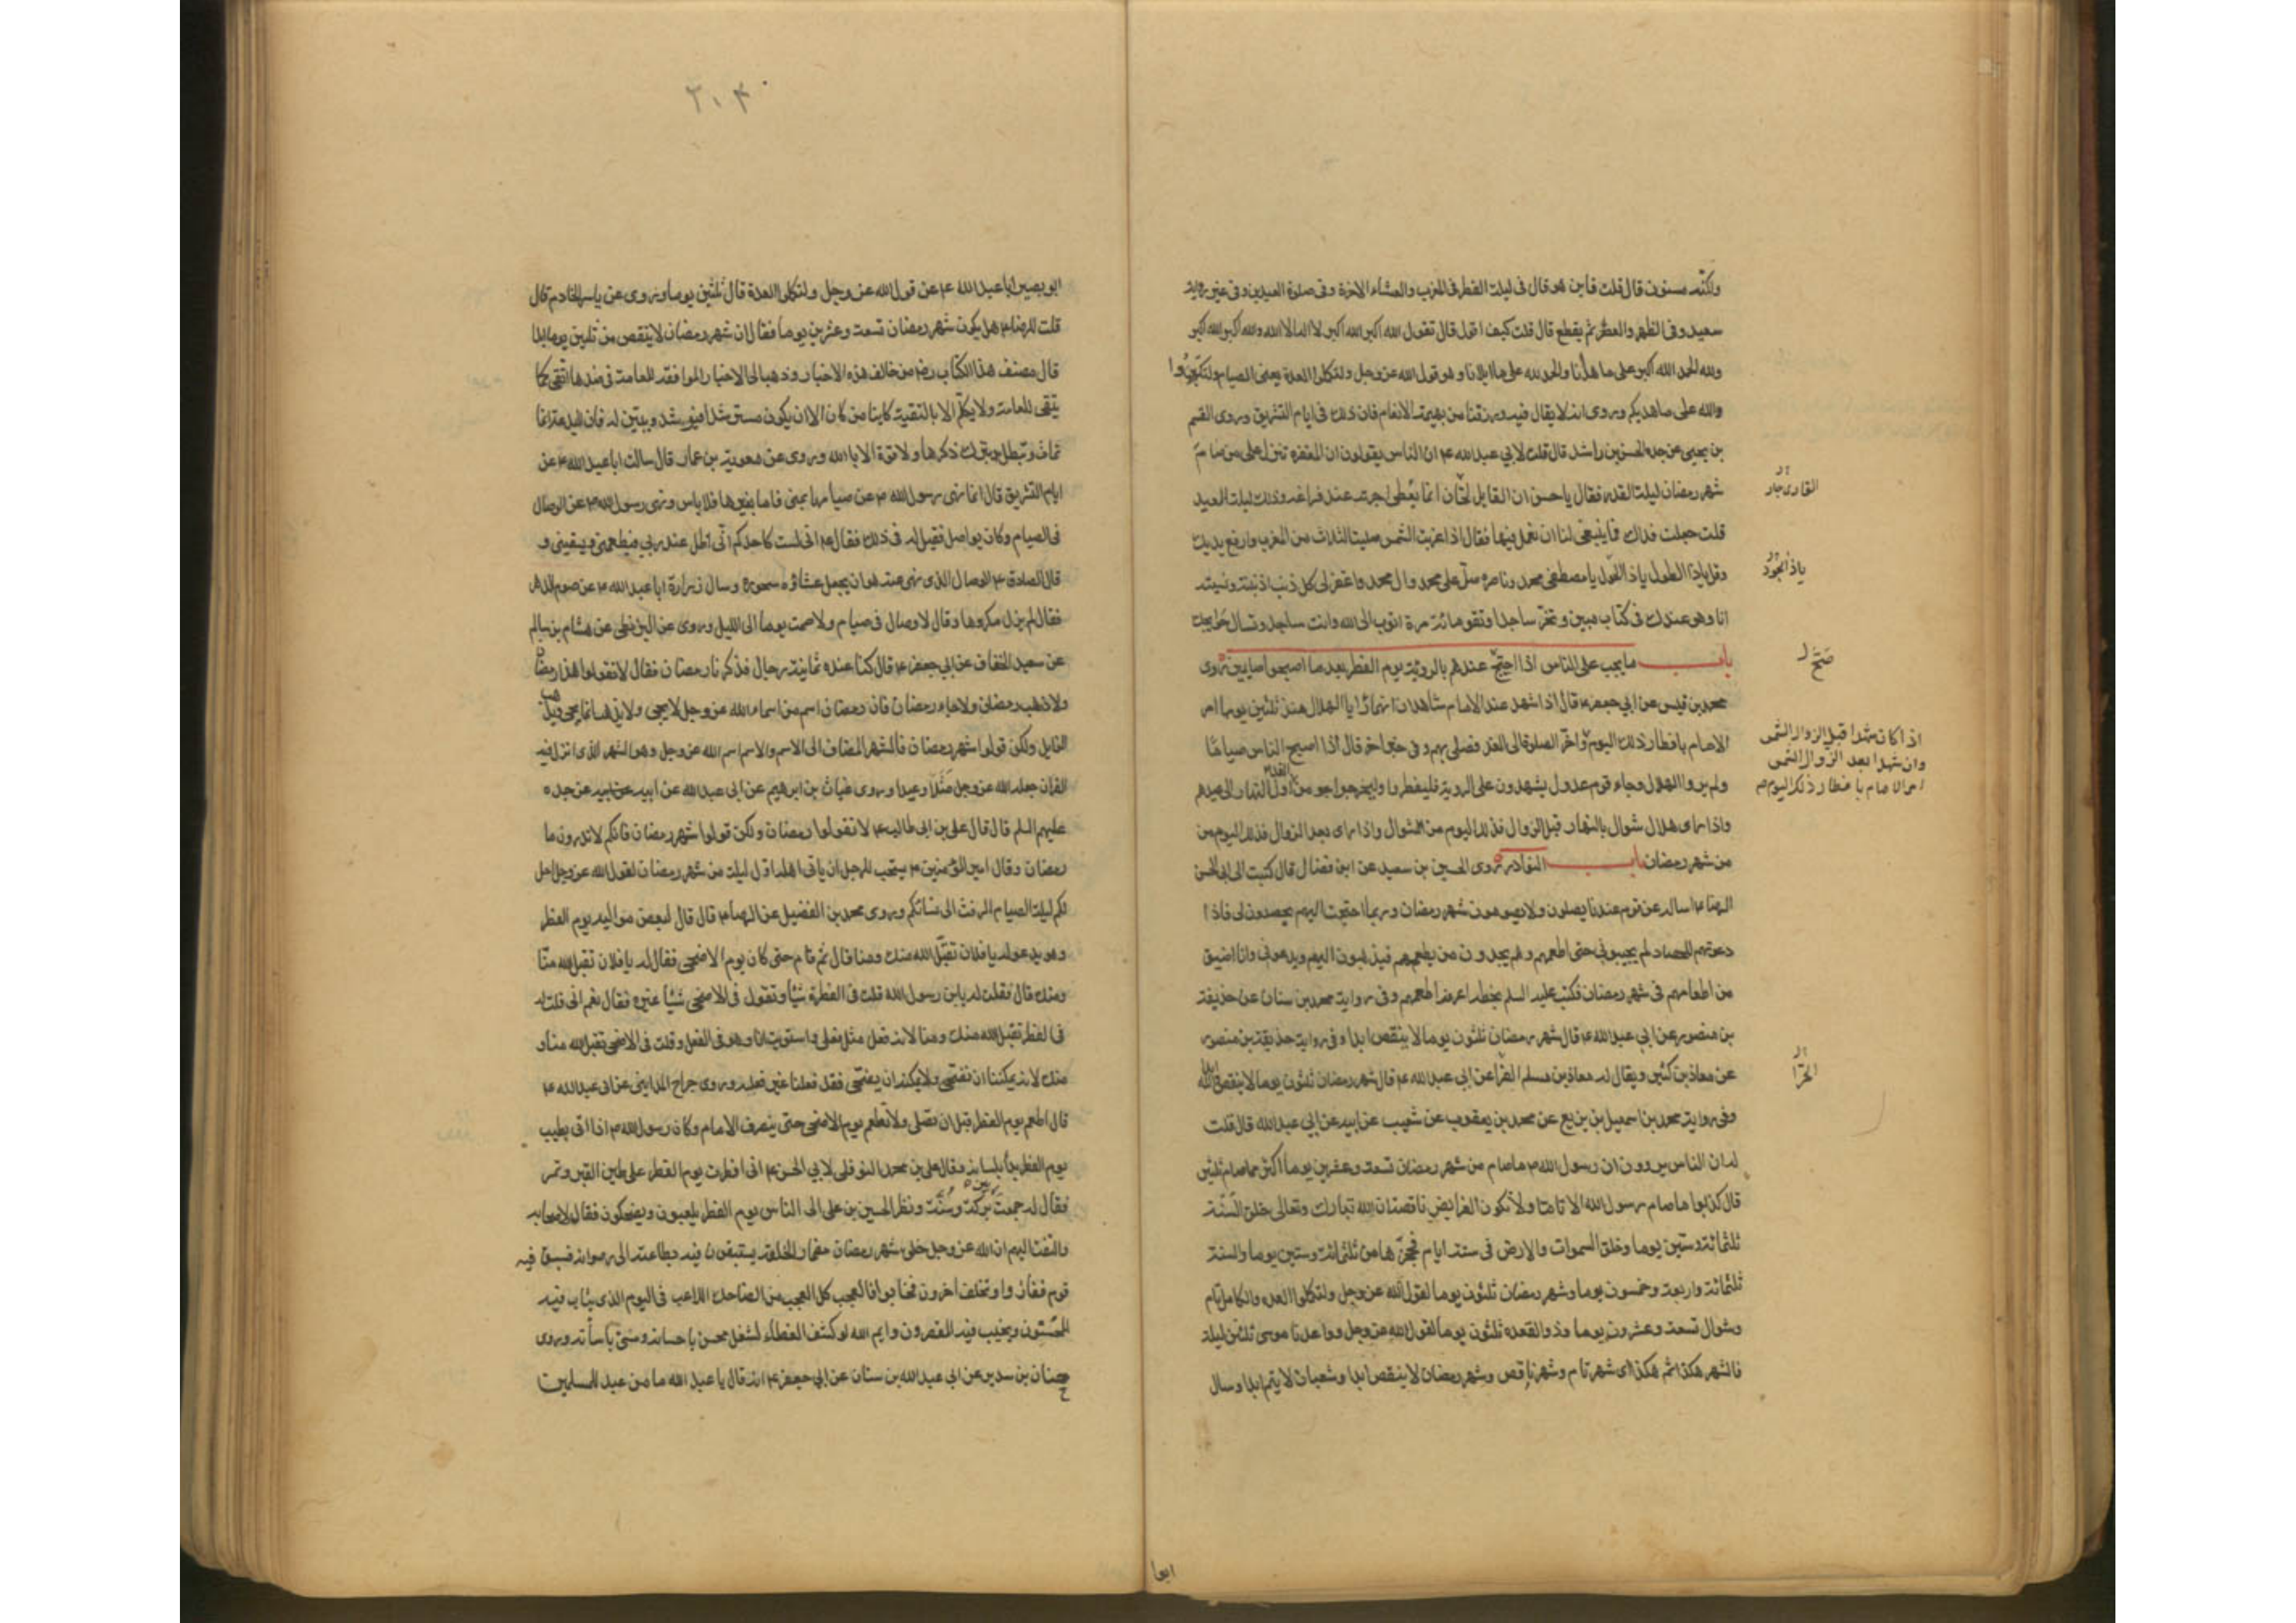 ولكنه مسنون قال قلت فاين هو قال في ليلة الفطر في المغرب والعشاء الاخرة وفي صلوة العيدين وفي غير رواية
سعيد وفي الظهر والعصر ثم يقطع قال قلت كيف اقول قال تقول الله اكبر الله اكبر لا اله الا الله والله اكبر الله اكبر
ولله الحمد الله اكبر على ما هدانا والحمد لله على ما ابلانا وهو قول الله عز وجل ولتكملوا العدة يعني الصيام ولتكبروا
والله على ما هديكم وروى انه لا يقال فيه ورزقنا من بهيمة الانعام فان ذلك في ايام التشريق وروى القسم
بن يحيى عن جده الحسن بن راشد قال قلت لابي عبد الله ع ان الناس يقولون ان المغفرة تنزل على من صام
شهر رمضان ليلة القدر فقال يا حسن ان القايل لحان انما يعطى اجرته عند فراغه وذلك ليلة العيد
القاريجار
قلت جعلت فداك فما ينبغي لنا ان نعمل فيها فقال اذا غربت الشمس صليت الثلاث من المغرب وارفع يديك
وقل ياذا الطول ياذا الحول يا مصطفى محمد وناصره صل على محمد وال محمد واغفر لي كل ذنب اذنبته ونسيته
ياذا الجود
انا وهو عندك في كتاب مبين وتخر ساجدا وتقول مائة مرة اتوب الى الله وانت ساجد وتسال حوايجك
باب ما يجب على الناس اذا احتج عندهم بالروية يوم الفطر بعد ما اصبحوا صايمين روى
صح
محمد بن قيس عن ابي جعفر ع قال اذا شهد عند الامام شاهدان انهما رايا الهلال منذ ثلثين يوما امر
الامام بافطار ذلك اليوم واخر الصلوة الى الغد فصلى بهم وفي خبر اخر قال اذا اصبح الناس صياما
اذا كانا شهدا قبل الزوال الشمس
وان شهدا بعد الزوال الشمس
امر الامام بافطار ذلك اليوم
ولم يروا الهلال وجاء قوم عدول يشهدون على الروية فليفطروا وليخرجوا من الغد اول النهار الى عيدهم
واذا راى هلال شوال بالنهار قبل الزوال فذلك اليوم من الشوال واذا راى بعد الزوال فذلك اليوم من
من شهر رمضان باب النوادر روى الحسين بن سعيد عن ابن فضال قال كتبت الى ابي الحسن
الرضا ع اساله عن قوم عندنا يصلون ولا يصومون شهر رمضان وربما احتجت اليهم يحصدون لي فاذا
دعوتهم للحصاد لم يجيبوني حتى اطعمهم وهم يجدون من يطعمهم فيذهبون اليهم ويدعوني وانا اضيق
من اطعامهم في شهر رمضان فكتب عليه السلم بخطه اعرفه اطعمهم وفي رواية محمد بن سنان عن حذيفة
بن منصور عن ابي عبد الله ع قال شهر رمضان ثلثون يوما لا ينقص ابدا وفي رواية حذيفة بن منصور
عن معاذ بن كثير ويقال له معاذ بن مسلم الفرا عن ابي عبد الله ع قال شهر رمضان ثلثون يوما لا ينقص والله ابدا
وفي رواية محمد بن اسمعيل بن بزيع عن محمد بن يعقوب عن شعيب عن ابيه عن ابي عبد الله قال قلت
له ان الناس يروون ان رسول الله ص ما صام من شهر رمضان تسعة وعشرين يوما اكثر مما صام ثلثين
قال كذبوا ما صام رسول الله الا تاما ولا تكون الفرايض ناقصة ان الله تبارك وتعالى خلق السنة
ثلثمائة وستين يوما وخلق السموات والارض في ستة ايام فحجزها من ثلثمائة وستين يوما والسنة
ثلثمائة واربعة وخمسون يوما وشهر رمضان ثلثون يوما لقول الله عز وجل ولتكملوا العدة والكامل تام
وشوال تسعة وعشرون يوما وذو القعدة ثلثون يوما لقول الله عز وجل وواعدنا موسى ثلثين ليلة
فالشهر هكذا ثم هكذا اى شهر تام وشهر ناقص وشهر رمضان لا ينقص ابدا وشعبان لا يتم ابدا وسال
ابو
۲۰۴
ابو بصير ابا عبد الله ع عن قول الله عز وجل ولتكملوا العدة قال ثلثين يوما وروى عن ياسر الخادم قال
قلت للرضا ع هل يكون شهر رمضان تسعة وعشرين يوما فقال ان شهر رمضان لا ينقص من ثلثين يوما ابدا
قال مصنف هذا الكتاب رض من خالف هذه الاخبار وذهب الى الاخبار الموافقة للعامة في ضدها اتقى كما
يتقى للعامة ولا يكلم الا بالتقية كاينا من كان الا ان يكون مسترشدا فيرشد ويبين له فان البدعة انما
تماث وتبطل بترك ذكرها ولا قوة الا بالله وروى عن معوية بن عمار قال سالت ابا عبد الله ع عن
ايام التشريق قال انما نهى رسول الله ص عن صيامها بمنى فاما بغيرها فلا باس ونهى رسول الله ص عن الوصال
في الصيام وكان يواصل فقيل له في ذلك فقال ع اني لست كاحدكم اني اظل عند ربي فيطعمني ويسقيني و
قال الصادق ع الوصال الذي نهى عنه هو ان يجعل عشاؤه سحوره وسال زرارة ابا عبد الله ع عن صوم الدهر
فقال لم يزل مكروها وقال لا وصال في صيام ولا صمت يوما الى الليل وروى عن البزنطي عن هشام بن سالم
عن سعيد الخفاف عن ابي جعفر ع قال كنا عنده ثمانية رجال فذكرنا رمضان فقال لا تقولوا هذا رمضان
ولا ذهب رمضان ولا جاء رمضان فان رمضان اسم من اسماء الله عز وجل لا يجى ولا يذهب انما يجى ويذهب
الزايل ولكن قولوا شهر رمضان فالشهر المضاف الى الاسم والاسم اسم الله عز وجل وهو الشهر الذي انزل فيه
القران جعله الله عز وجل مثلا وعيدا وروى غياث بن ابرهيم عن ابي عبد الله عن ابيه عن ابيه عن جده
عليهم السلم قال قال علي بن ابي طالب ع لا تقولوا رمضان ولكن قولوا شهر رمضان فانكم لا تدرون ما
رمضان وقال امير المؤمنين ع يستحب للرجل ان ياتي اهله اول ليلة من شهر رمضان لقول الله عز وجل احل
لكم ليلة الصيام الرفث الى نسائكم وروى محمد بن الفضيل عن الرضا ع قال قال لبعض مواليه يوم الفطر
وهو يدعو له يا فلان تقبل الله منك ومنا قال ثم قام حتى كان يوم الاضحى فقال له يا فلان تقبل الله منا
ومنك قال فقلت له يا بن رسول الله قلت في الفطر شيئا وتقول في الاضحى شيئا غيره فقال نعم اني قلت له
في الفطر تقبل الله منك ومنا لانه فعل مثل فعلي واستويت انا وهو في الفعل وقلت في الاضحى تقبل الله منا و
منك لانه يمكننا ان نضحى ولا يمكنه ان يضحى فقد فعلنا غير فعله وروى جراح المدايني عن ابي عبد الله ع
قال اطعم يوم الفطر قبل ان تصلي ولا تطعم يوم الاضحى حتى ينصرف الامام وكان رسول الله ص اذا اتى بطيب
يوم الفطر بدأ بلسانه وقال علي بن محمد النوفلي لابي الحسن ع اني افطرت يوم الفطر على طين القبر وتمر
فقال له جمعت بركة وسنة ونظر الحسين بن علي الى الناس يوم الفطر يلعبون ويضحكون فقال لاصحابه
والتفت اليهم ان الله عز وجل خلق شهر رمضان مضمار الخلقه يستبقون فيه بطاعته الى رضوانه فسبق فيه
قوم ففازوا وتخلف اخرون فخابوا فالعجب كل العجب من الضاحك اللاعب في اليوم الذي يثاب فيه
المحسنون ويخيب فيه المقصرون وايم الله لو كشف الغطاء لشغل محسن باحسانه ومسئ باسائته وروى
حنان بن سدير عن ابي عبد الله بن سنان عن ابي جعفر ع انه قال يا عبد الله ما من عيد للمسلمين